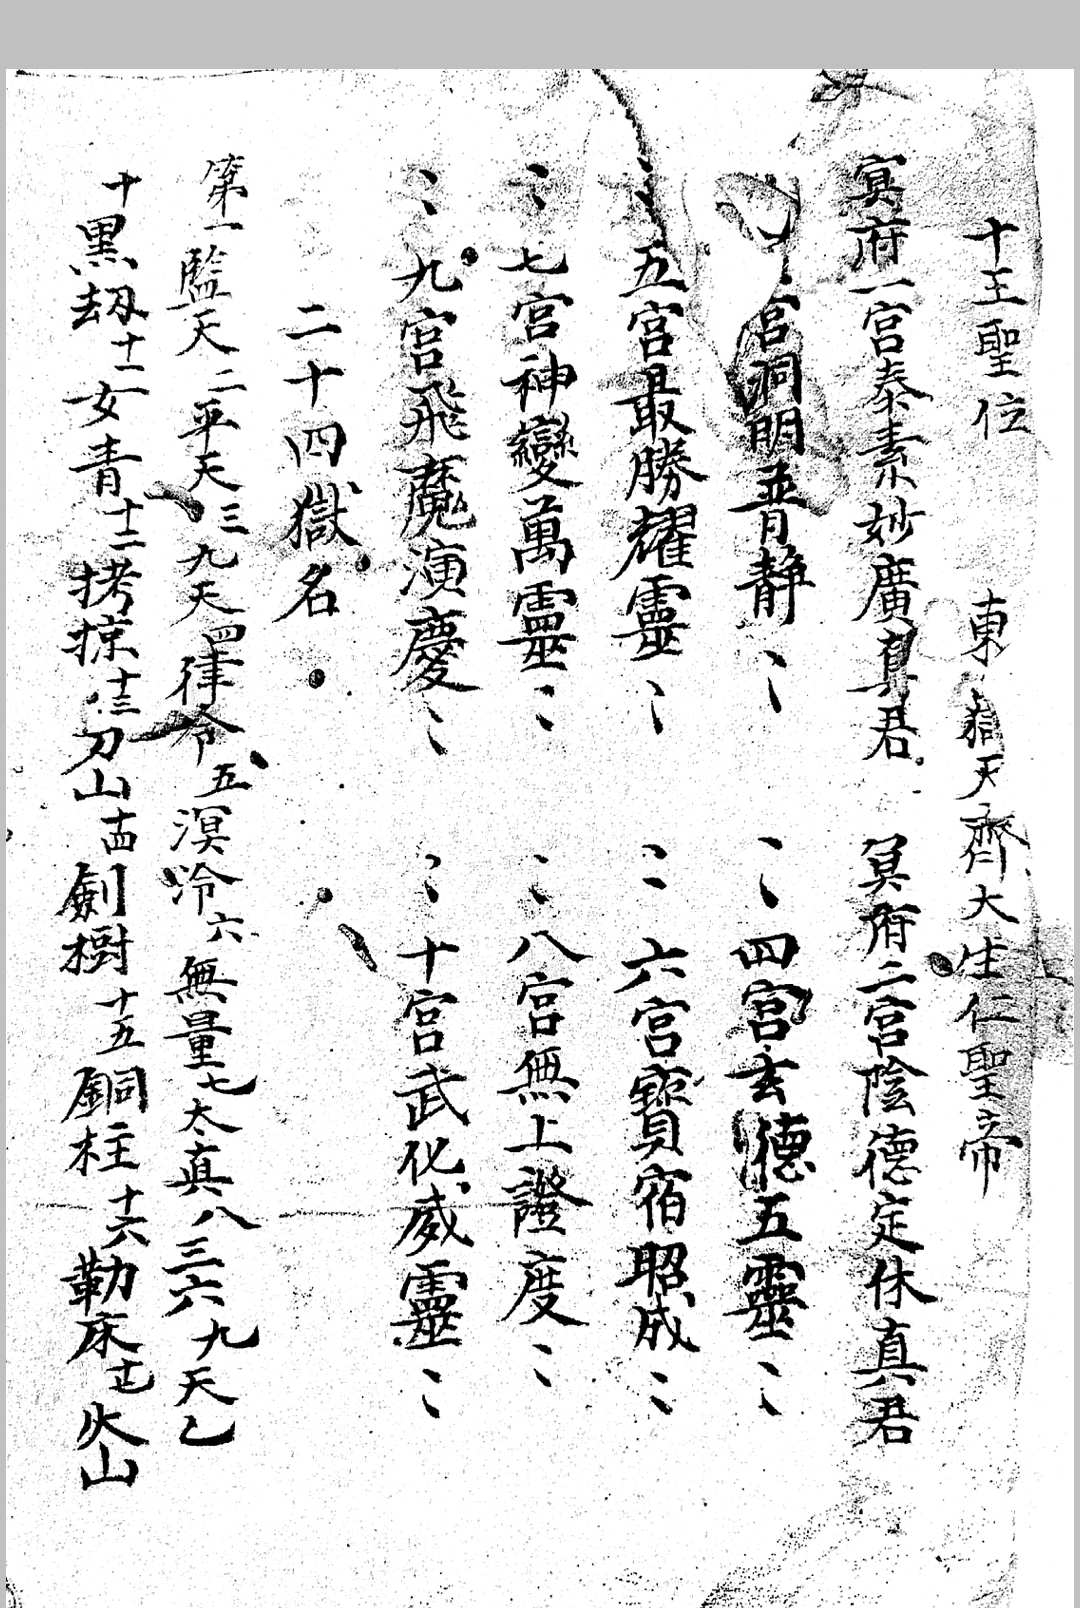 十王聖位　東嶽天齊大生仁聖帝
冥府一宮泰素妙廣真君　冥府二宮陰德定休真君
宮洞明普静〻　〻四宮玄德五靈〻
〻五宮最勝耀靈〻　〻六宮寶宿昭成〻
〻七宮神變萬靈〻　〻八宮無上證度〻
〻九宮飛魔演慶〻　〻十宮武化威靈〻
二十四獄名
第一監天二平天三九天四律令五溟泠六無量七太真八三六九天乙
十黑刼十一女青十二拷掠十三刀山十四劍樹十五銅柱十六勒床十七火山